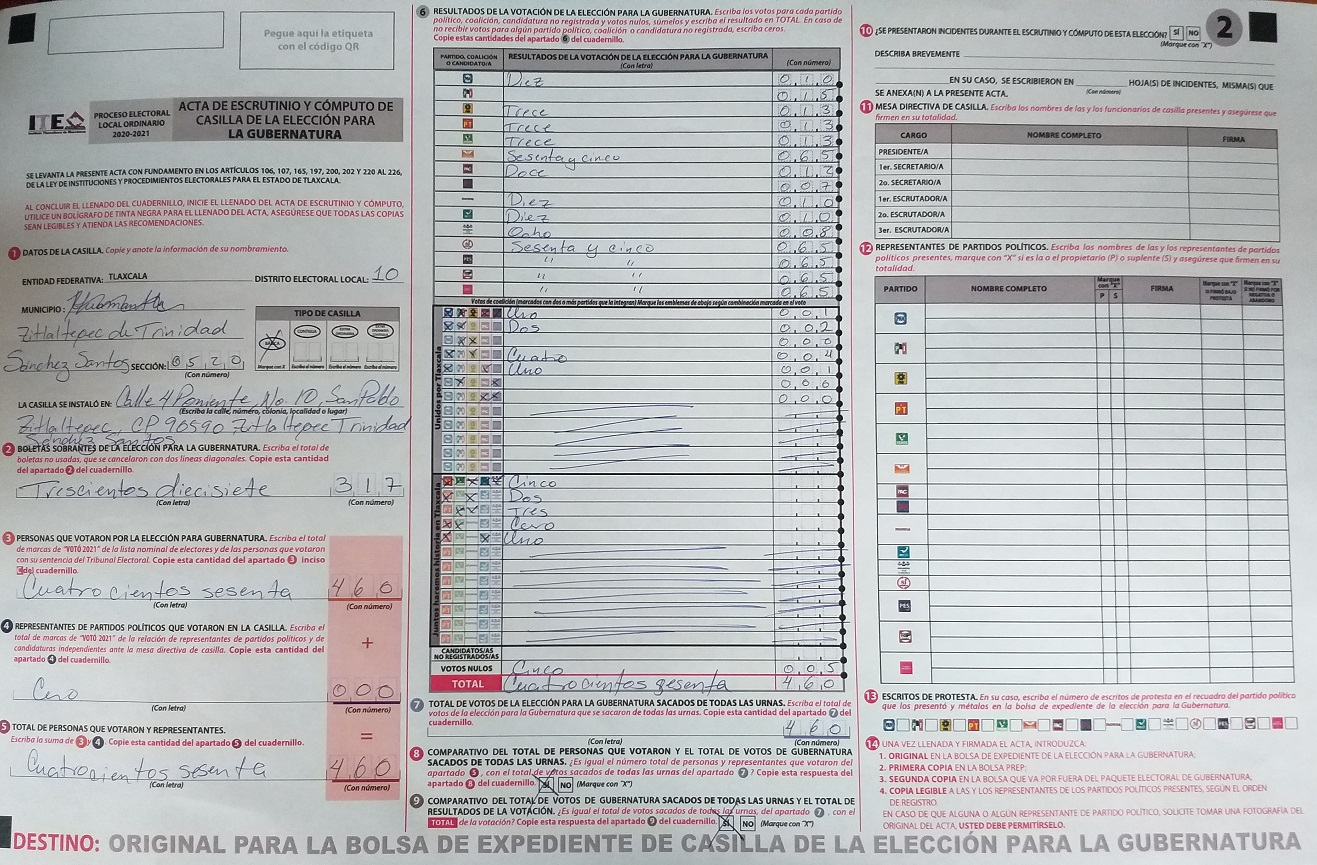 Pegue aquí la etiqueta
con el código QR
ITE
PROCESO ELECTORAL
LOCAL ORDINARIO
2020-2021
ACTA DE ESCRUTINIO Y CÓMPUTO DE
CASILLA DE LA ELECCIÓN PARA
LA GUBERNATURA
SE LEVANTA LA PRESENTE ACTA CON FUNDAMENTO EN LOS ARTÍCULOS 106, 107, 165, 197, 200, 202 Y 220 AL 226,
DE LA LEY DE INSTITUCIONES Y PROCEDIMIENTOS ELECTORALES PARA EL ESTADO DE TLAXCALA.
AL CONCLUIR EL LLENADO DEL CUADERNILLO, INICIE EL LLENADO DEL ACTA DE ESCRUTINIO Y CÓMPUTO,
UTILICE UN BOLÍGRAFO DE TINTA NEGRA PARA EL LLENADO DEL ACTA, ASEGÚRESE QUE TODAS LAS COPIAS
SEAN LEGIBLES Y ATIENDA LAS RECOMENDACIONES.
1 DATOS DE LA CASILLA. Copie y anote la información de su nombramiento.
ENTIDAD FEDERATIVA: TLAXCALA DISTRITO ELECTORAL LOCAL: 10
MUNICIPIO: Huamantla
Zitlaltepec de Trinidad
Sánchez Santos SECCIÓN: 0520
(Con número)
TIPO DE CASILLA
BÁSICA CONTIGUA
Marque con X Escriba el número Escriba el número
LA CASILLA SE INSTALÓ EN: Calle 4 Poniente, No. 10, San Pablo
(Escriba la calle, número, colonia, localidad o lugar)
Zitlaltepec, CP 90590 Zitlaltepec Trinidad
Sánchez Santos
2 BOLETAS SOBRANTES DE LA ELECCIÓN PARA LA GUBERNATURA. Escriba el total de
boletas no usadas, que se cancelaron con dos líneas diagonales. Copie esta cantidad
del apartado 2 del cuadernillo.
Trescientos diecisiete 317
(Con letra) (Con número)
3 PERSONAS QUE VOTARON POR LA ELECCIÓN PARA GUBERNATURA. Escriba el total
de marcas de "VOTÓ 2021" de la lista nominal de electores y de las personas que votaron
con su sentencia del Tribunal Electoral. Copie esta cantidad del apartado 3 inciso
C del cuadernillo.
Cuatro cientos sesenta 460
(Con letra) (Con número)
4 REPRESENTANTES DE PARTIDOS POLÍTICOS QUE VOTARON EN LA CASILLA. Escriba el
total de marcas de "VOTÓ 2021" de la relación de representantes de partidos políticos y de
candidaturas independientes ante la mesa directiva de casilla. Copie esta cantidad del
apartado 4 del cuadernillo.
+
Cero 000
(Con letra) (Con número)
5 TOTAL DE PERSONAS QUE VOTARON Y REPRESENTANTES.
Escriba la suma de 3 y 4. Copie esta cantidad del apartado 5 del cuadernillo.
=
Cuatrocientos sesenta 460
(Con letra) (Con número)
6 RESULTADOS DE LA VOTACIÓN DE LA ELECCIÓN PARA LA GUBERNATURA. Escriba los votos para cada partido
político, coalición, candidatura no registrada y votos nulos, súmelos y escriba el resultado en TOTAL. En caso de
no recibir votos para algún partido político, coalición o candidatura no registrada, escriba ceros.
Copie estas cantidades del apartado 6 del cuadernillo.
PARTIDO, COALICIÓN
O CANDIDATO/A
RESULTADOS DE LA VOTACIÓN DE LA ELECCIÓN PARA LA GUBERNATURA
(Con letra) (Con número)
Diez 010
015
Trece 013
PT Trece 013
Trece 013
Sesenta y cinco 065
PAC Doce 012
007
Diez 010
Diez 010
Ocho 008
Sesenta y cinco 065
PES " " 065
" " 065
" " 065
Votos de coalición (marcados con dos o más partidos que la integran) Marque los emblemas de abajo según combinación marcada en el voto
Unidos por Tlaxcala
Uno 001
Dos 002
000
Cuatro 004
Uno 001
006
000
Juntos haremos historia en Tlaxcala
Cinco
Dos
Tres
Cero
Uno
CANDIDATOS/AS
NO REGISTRADOS/AS
VOTOS NULOS Cinco 005
TOTAL Cuatrocientos sesenta 460
7 TOTAL DE VOTOS DE LA ELECCIÓN PARA LA GUBERNATURA SACADOS DE TODAS LAS URNAS. Escriba el total de
votos de la elección para la Gubernatura que se sacaron de todas las urnas. Copie esta cantidad del apartado 7 del
cuadernillo.
460
(Con letra) (Con número)
8 COMPARATIVO DEL TOTAL DE PERSONAS QUE VOTARON Y EL TOTAL DE VOTOS DE GUBERNATURA
SACADOS DE TODAS LAS URNAS. ¿Es igual el número total de personas y representantes que votaron del
apartado 5, con el total de votos sacados de todas las urnas del apartado 7? Copie esta respuesta del
apartado 8 del cuadernillo. SÍ NO (Marque con "X")
9 COMPARATIVO DEL TOTAL DE VOTOS DE GUBERNATURA SACADOS DE TODAS LAS URNAS Y EL TOTAL DE
RESULTADOS DE LA VOTACIÓN. ¿Es igual el total de votos sacados de todas las urnas, del apartado 7, con el
TOTAL de la votación? Copie esta respuesta del apartado 9 del cuadernillo. SÍ NO (Marque con "X")
2
10 ¿SE PRESENTARON INCIDENTES DURANTE EL ESCRUTINIO Y CÓMPUTO DE ESTA ELECCIÓN? SÍ NO
(Marque con "X")
DESCRIBA BREVEMENTE
EN SU CASO, SE ESCRIBIERON EN HOJA(S) DE INCIDENTES, MISMA(S) QUE
(Con número)
SE ANEXA(N) A LA PRESENTE ACTA.
11 MESA DIRECTIVA DE CASILLA. Escriba los nombres de las y los funcionarios de casilla presentes y asegúrese que
firmen en su totalidad.
CARGO NOMBRE COMPLETO FIRMA
PRESIDENTE/A
1er. SECRETARIO/A
2o. SECRETARIO/A
1er. ESCRUTADOR/A
2o. ESCRUTADOR/A
3er. ESCRUTADOR/A
12 REPRESENTANTES DE PARTIDOS POLÍTICOS. Escriba los nombres de las y los representantes de partidos
políticos presentes, marque con "X" si es la o el propietario (P) o suplente (S) y asegúrese que firmen en su
totalidad.
PARTIDO NOMBRE COMPLETO Marque con "X" P S FIRMA
PAN
PRI
PRD
PT
PAC
PES
13 ESCRITOS DE PROTESTA. En su caso, escriba el número de escritos de protesta en el recuadro del partido político
que los presentó y métalos en la bolsa de expediente de la elección para la Gubernatura.
14 UNA VEZ LLENADA Y FIRMADA EL ACTA, INTRODUZCA:
1. ORIGINAL EN LA BOLSA DE EXPEDIENTE DE LA ELECCIÓN PARA LA GUBERNATURA;
2. PRIMERA COPIA EN LA BOLSA PREP;
3. SEGUNDA COPIA EN LA BOLSA QUE VA POR FUERA DEL PAQUETE ELECTORAL DE GUBERNATURA;
4. COPIA LEGIBLE A LAS Y LOS REPRESENTANTES DE LOS PARTIDOS POLÍTICOS PRESENTES, SEGÚN EL ORDEN
DE REGISTRO.
EN CASO DE QUE ALGUNA O ALGÚN REPRESENTANTE DE PARTIDO POLÍTICO, SOLICITE TOMAR UNA FOTOGRAFÍA DEL
ORIGINAL DEL ACTA, USTED DEBE PERMITÍRSELO.
DESTINO: ORIGINAL PARA LA BOLSA DE EXPEDIENTE DE CASILLA DE LA ELECCIÓN PARA LA GUBERNATURA